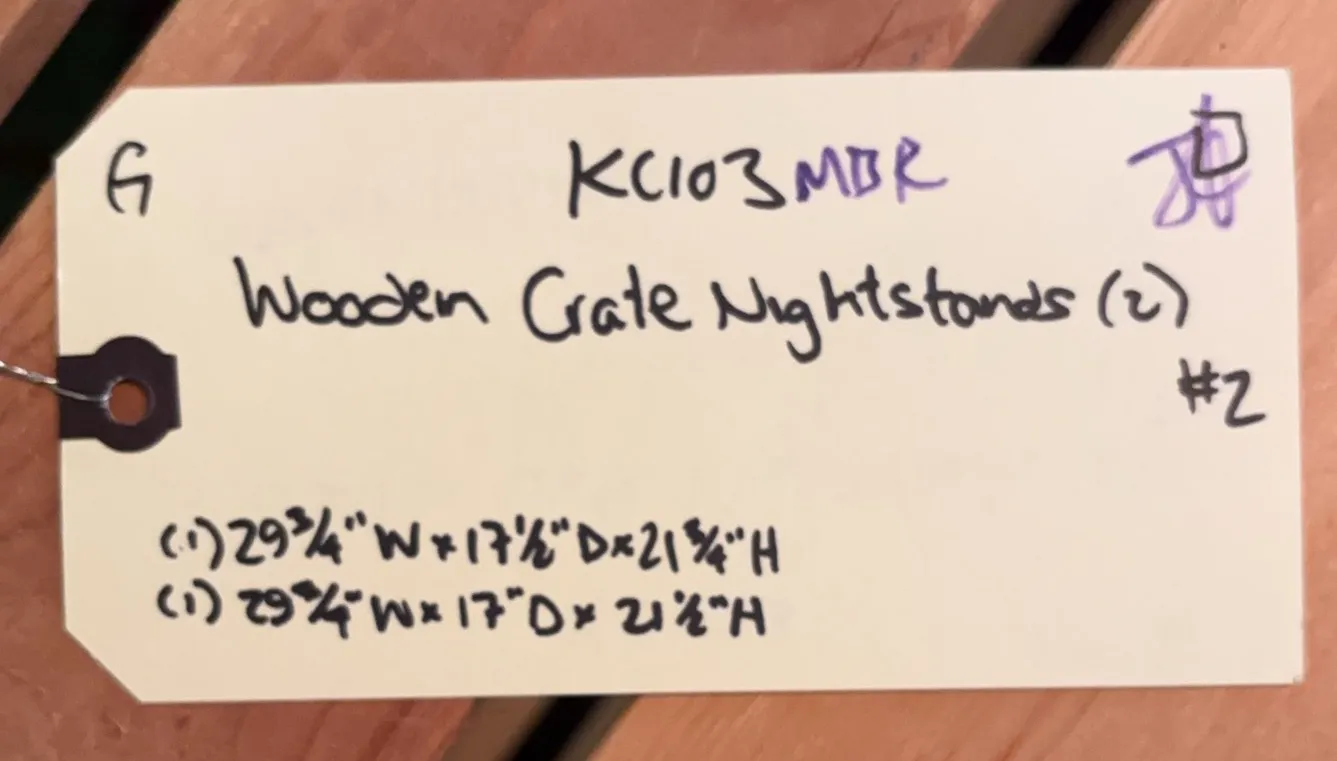 G KC103 MBR D
Wooden Crate Nightstands (2)
#2
(1) 29 3/4" W x 17 1/2" D x 21 3/4" H
(1) 29 3/4" W x 17" D x 21 1/2" H